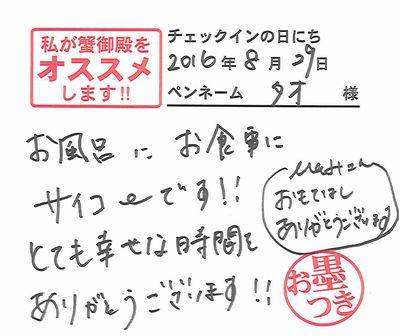 私が蟹御殿を
オススメ
します!!
チェックインの日にち
2016年8月29日
ペンネーム タオ 様
お風呂にお食事に
サイコーです!!
とても幸せな時間を
ありがとうございます!!
おもてなし
ありがとうございます
お墨つき